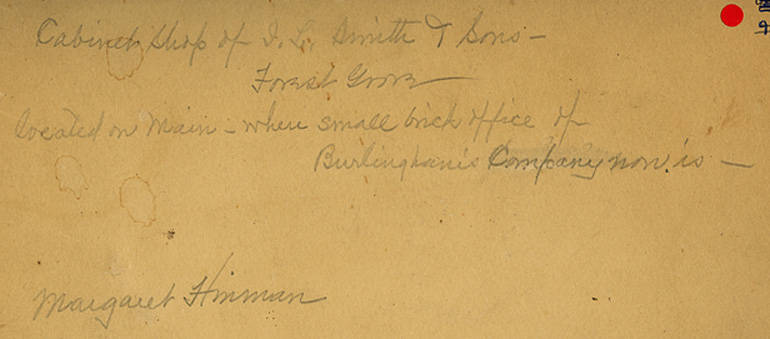 Cabinet Shop of I. L. Smith & Sons -
Forest Grove
located on Main - where small brick office of
Burlingham's Company now is -
Margaret Hinman